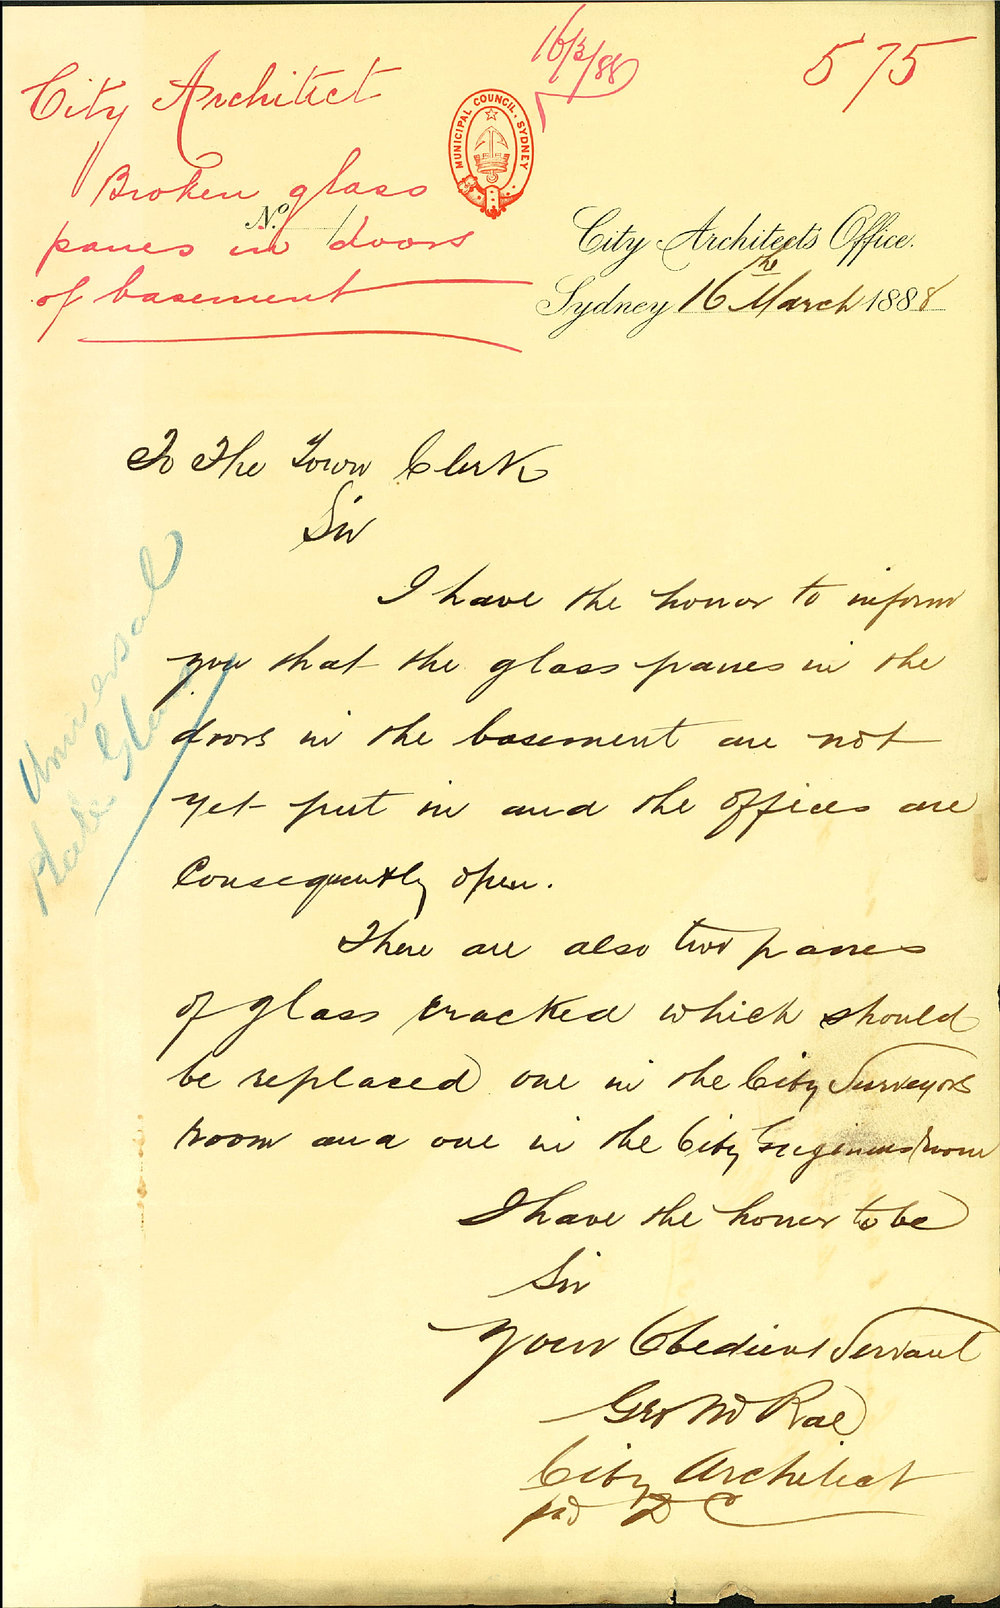 16/3/88
575
City Architect
Broken glass
panes in doors
of basement
MUNICIPAL COUNCIL. SYDNEY
No.
City Architect's Office.
Sydney 16th March 1888
To The Town Clerk
Sir
I have the honor to inform
you that the glass panes in the
doors in the basement are not
yet put in and the offices are
Consequently open.
There are also two panes
of glass cracked which should
be replaced one in the City Surveyors
room and one in the City Engineers room
I have the honor to be
Sir
Your Obedient Servant
Geo McRae
City Architect
Universal
Plate Glass